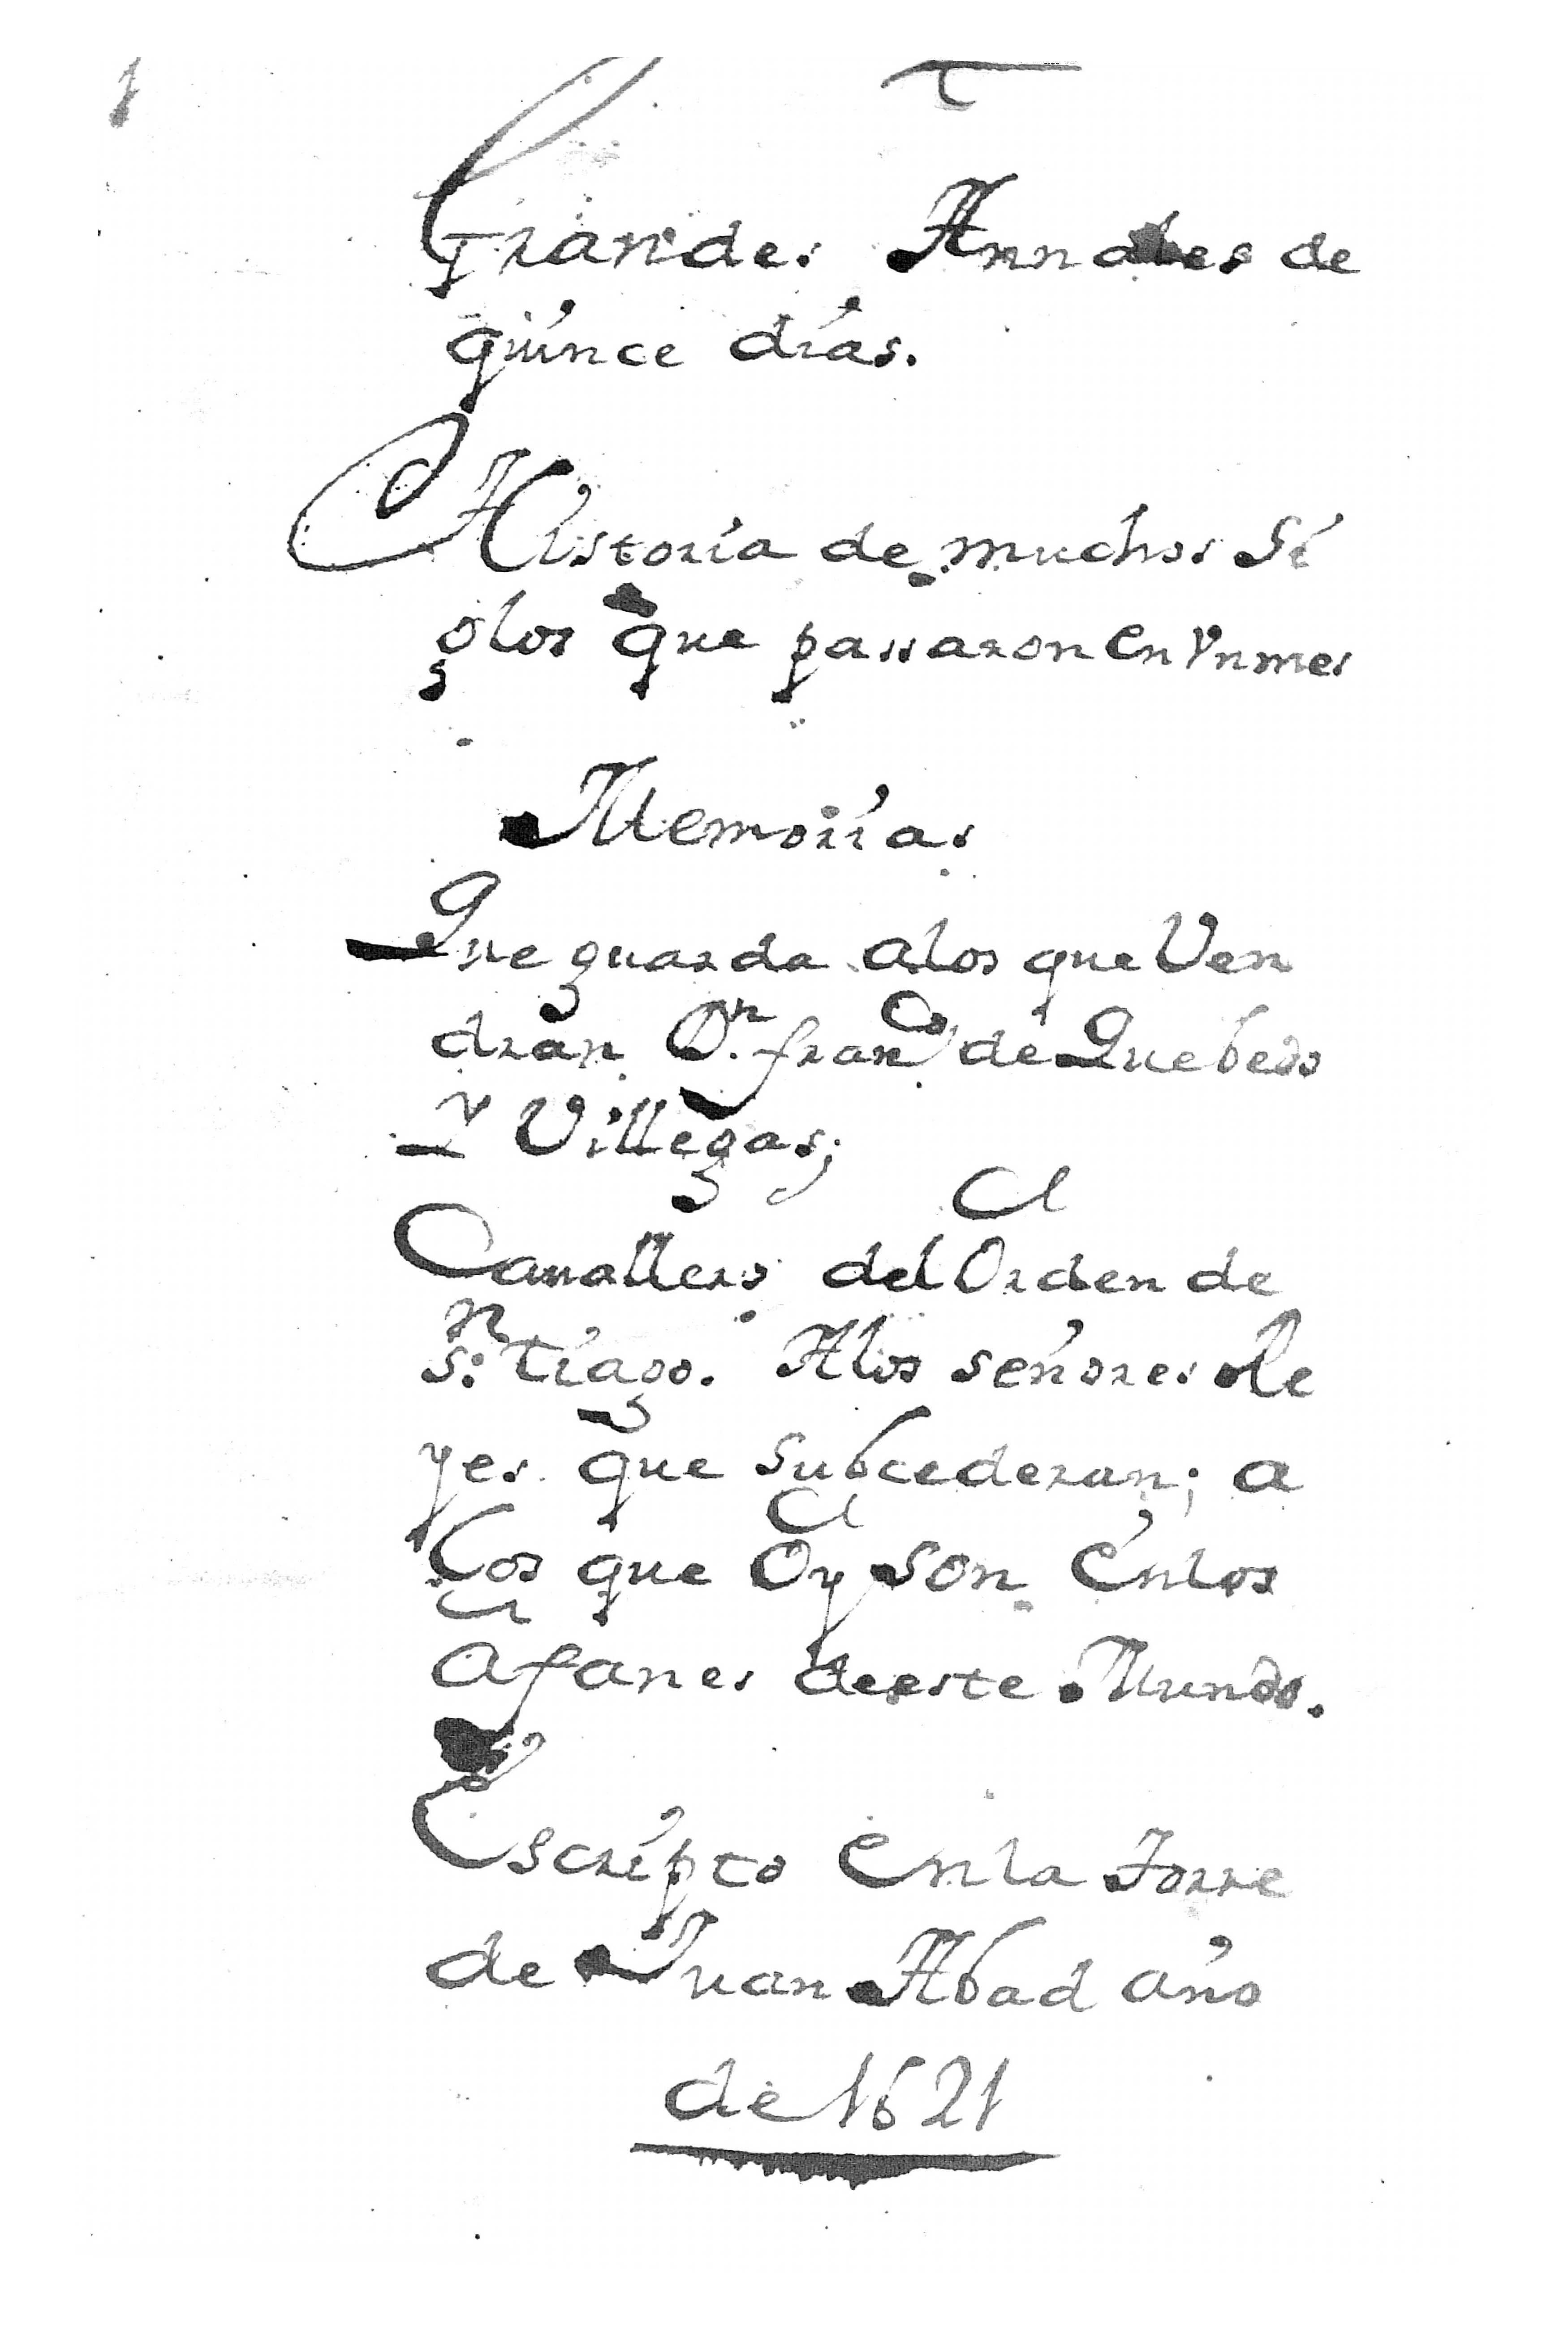 Grandes Annales de
quince días.
Historia de muchos Si
glos que passaron en Vn mes
Memorias
Que guarda alos que Ven
dran D.n franco de Quebedo
Y Villegas;
Cauallero del Orden de
S.n tiago. Alos señores Re
yes que Subcederan; a
Los que Oy son enlos
Afanes deeste Mundo.
Escripto enla Torre
de Juan Abad año
de 1621